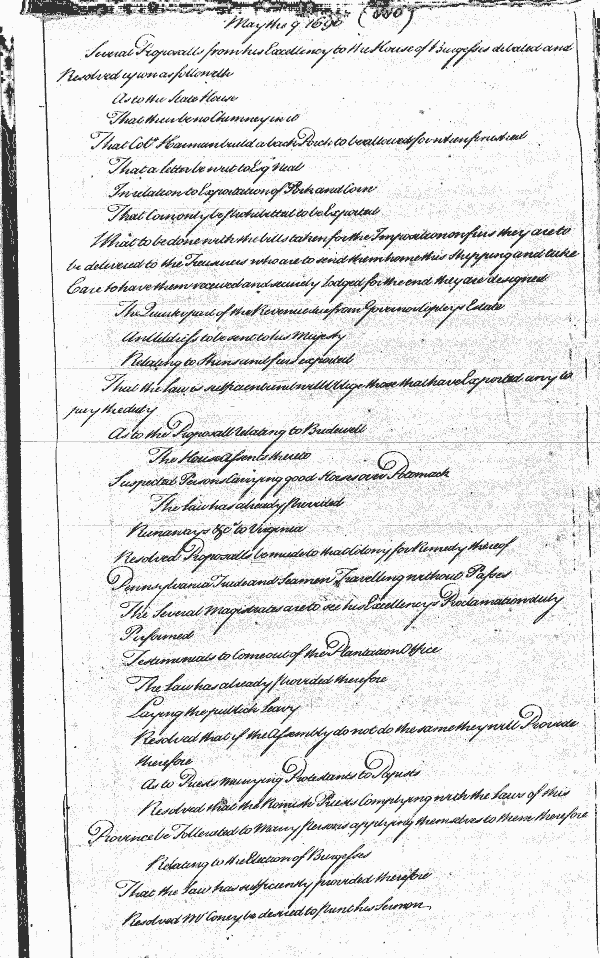 May the 9 1696
Several Proposalls from his Excellency to the House of Burgesses debated and
Resolved upon as followeth
As to the State House
That there be no Chimney in it
That Coll Harman build a back Porch to be allowed for
That a letter be writ to Esqr Neal
In relation to Exportation of Pork and Corn
That Corn only be prohibitted to be Exported
What to be done with the bills taken for the Imposition on furs they are to
be delivered to the Treasurers who are to send them home this Shipping and take
Care to have them received and securely lodged for the end they are designed
The part of the Revenue due from Governor Copleys Estate
An Address to be sent to his Majesty
Relating to Skins and furs exported
That the Law is sufficient and will Oblige those that have Exported any to
pay the duty
As to the Proposall relating to Bridewell
The House Assents thereto
Suspected Persons carrying good Horses over Potomack
The Law has already provided
Runaways &c to Virginia
Resolved Proposalls be made to that Colony for Remedy thereof
Pennsylvania Trade and Seamen Travelling without Passes
The Several Magistrates are to see his Excellencys Proclamation duly
Performed
Testimonials to come out of the Plantation Office
The Law has already provided therefore
Laying the publick Leavy
Resolved that if the Assembly do not do the same they will Provide
therefore
As to Priests marrying Protestants to Papists
Resolved that the Romish Priests Complying with the Laws of this
Province be Tollerated to Marry persons applying themselves to them therefore
Relating to the Election of Burgesses
That the Law has sufficiently provided therefore
Resolved Mr Coney be desired to print his Sermon